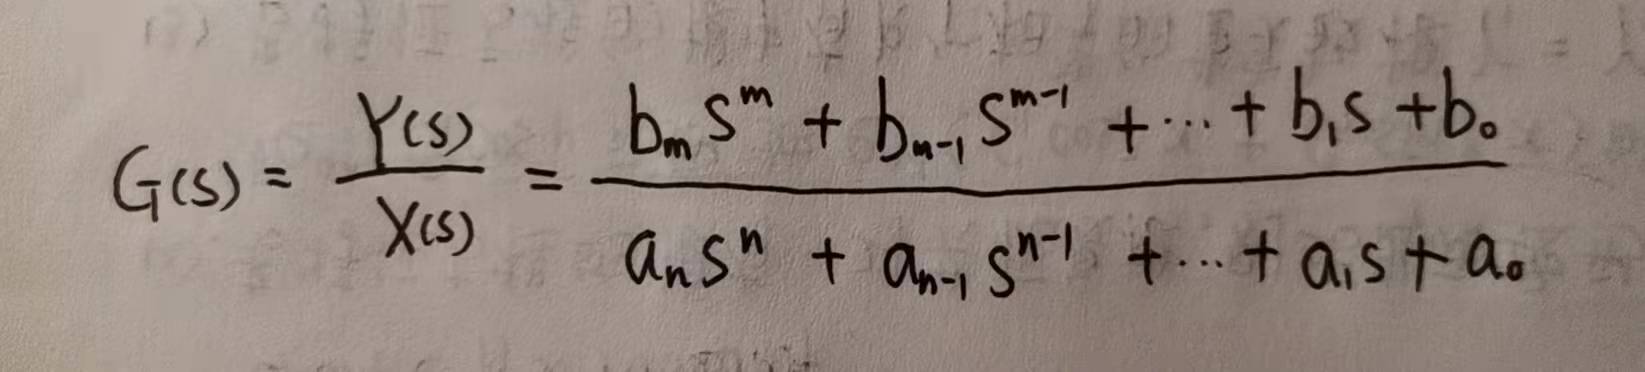 G(s) = \frac{Y(s)}{X(s)} = \frac{b_m s^m + b_{m-1} s^{m-1} + \cdots + b_1 s + b_0}{a_n s^n + a_{n-1} s^{n-1} + \cdots + a_1 s + a_0}